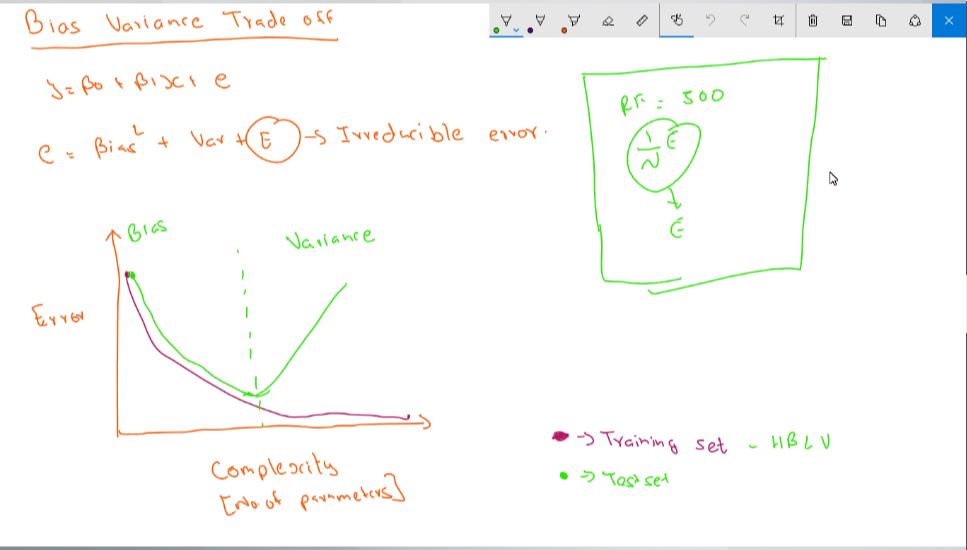 Bias Variance Trade off
y = β0 + β1x1 + e
e = Bias² + Var + E → Irreducible error.
RF = 500
1/N E
E
Bias
Variance
Error
Complexity
[No of parameters]
→ Training set - HBLV
→ Test set